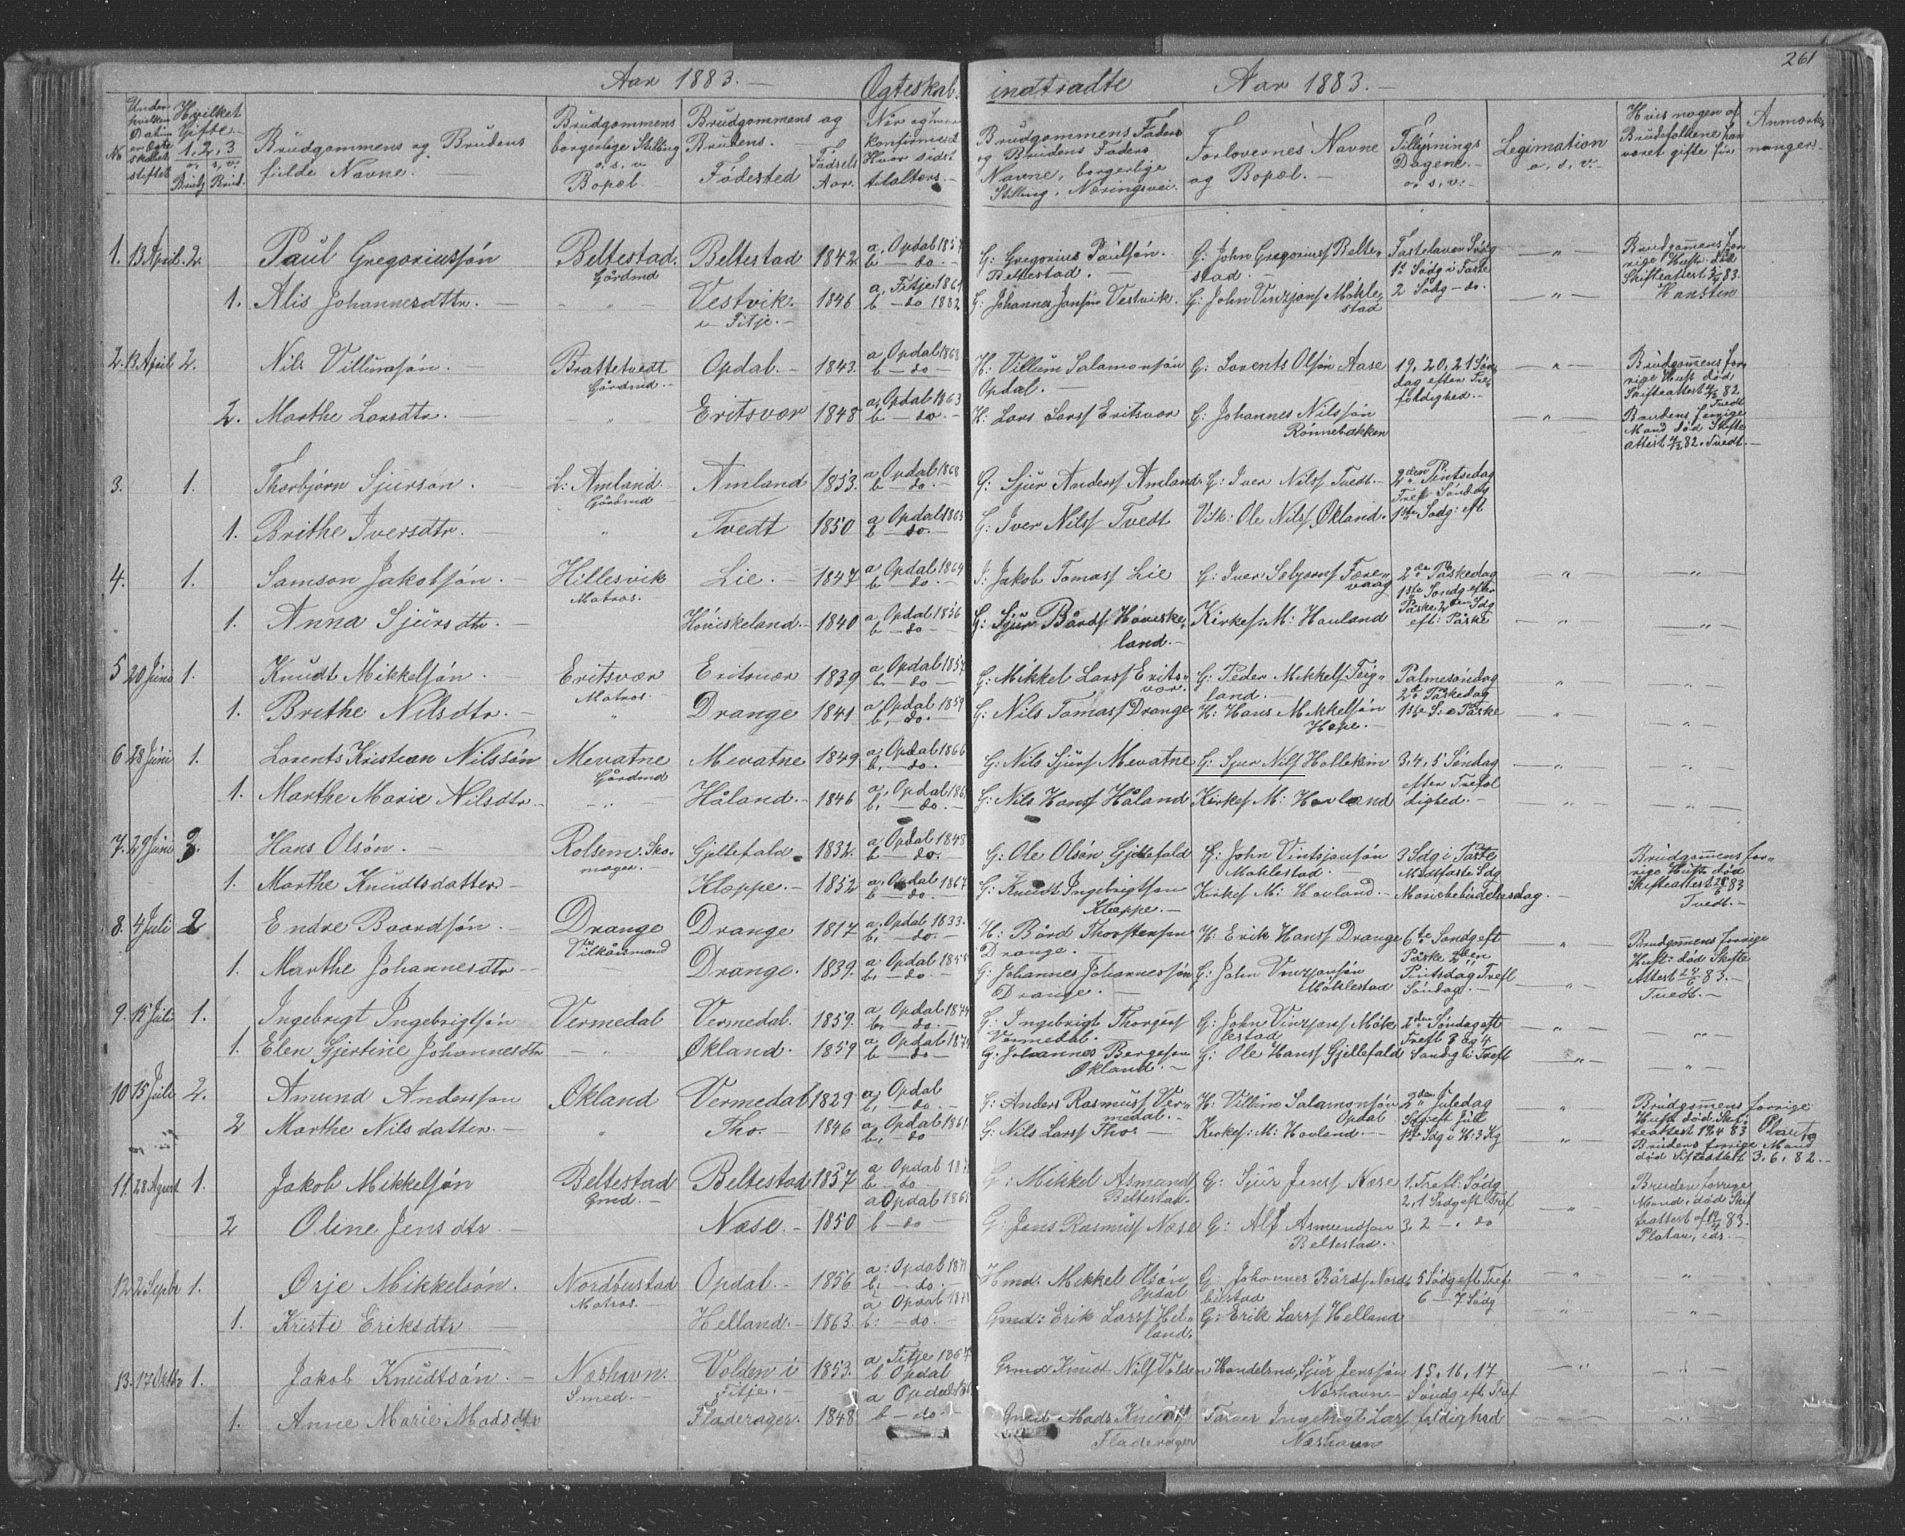 261
Aar 1883. Ægteskab indtradte Aar 1883.
No
Brudgommens og Brudens fulde Navne.
Brudgommens borgerlige Stilling o. s. v. Bopæl.
Brudgommens og Brudens Fødested
Fødsels Aar.
Brudgommens Faders og Brudens Faders Navne, borgerlige Stilling, Næringsvei.
Forlovernes Navne og Bopæl.
Tillysnings Dagene o. s. v.
Legimation o. s. v.
Hvis nogen af Brudefolkene har været gifte før
Anmærkninger
1. 13 April 2. Paul Gregoriussøn Beltestad. Gårdmd Beltestad 1842 a, Opdal 1857 b - do. G: Gregorius Paulsøn. Beltestad. G: John Gregoriuss Beltestad. Fastelaven Sødg 1st Sødg i Faste Brudgommens forrige Hust. død Skifteattest 83. Hansten
1. Alis Johannesdttr. Vestvik i Fitje. 1846 a, Fitje 1861 b - do 1882 G: Johannes Jansøn Vestvik. G: John Vinzjans Møklestad 2 Sødg - do.
2. 13 April 2. Nils Villumsøn. Brattetvedt Gårdmd. Opdal. 1843. a Opdal 1868 b - do H: Villum Salamonsøn Opdal. G: Lorents Olsøn Aase 19, 20, 21 Søndag efter Trefoldighed. Brudgommens forrige Hust. død Skifteattest 82 Tvedt
2. Marthe Larsdtr. Eritsvær 1848 a, Opdal 1863 b - do. H: Lars Larss Eritsvær G: Johannes Nilssøn Rønnebakken Brudens forrige Mand død Skifteattest 82. Tvedt.
3. 1. Thorbjørn Sjursøn. L: Amland Gårdmd Amland 1853. a Opdal 1868 b - do. G: Sjur Anderss Amland. G: Iver Nilss Tvedt 2den Pintsedag Tref. Søndag
1. Brithe Iversdtr. Tvedt 1850 a Opdal 1865 b - do. G: Iver Nilss Tvedt Vilk: Ole Nilss Økland. 1ste Sødg: eft
4. 1. Samson Jakobsøn. Hillesvik Matros. Lie. 1847 a Opdal 1864 b - do. J: Jakob Tomass Lie G: Iver Sæbjørns Færevaag 2den Påskedag 1ste Søndg efter
1. Anna Sjursdtr. Høviskeland. 1840 a, Opdal 1856 b - do G: Sjur Bårds Høviskeland. Kirkes: M: Havland Påske 2den Sdg eft: Påske
5 20 Juni 1. Knudt Mikkelsøn. Eritsvær Matros. Eritsvær 1839 a, Opdal 1857 b. - do G: Mikkel Larss Eritsvær. G: Peder Mikkels Feigland. Palmesøndag 2den Påskedag
1. Brithe Nilsdtr. Drange 1841 a, Opdal 1859 b, do. G: Nils Tomass Drange H: Hans Mikkelsøn Hope. 1ste S: e Påske
6 28 Juni 1. Lorents Kristian Nilssøn Mevatne Gårdmd Mevatne 1849 a, Opdal 1866 b, - do. G: Nils Sjurs Mevatne G: Sjur Nilss Hollekim 3, 4, 5 Søndag
1. Marthe Marie Nilsdtr. Håland. 1846 a, Opdal b, - do. G: Nils Hanss Håland Kirkes M: Havland efter Trefoldighed.
7. 29 Juni 3. Hans Olsøn. Rolsem. Skomager. Gjillefald 1832. a Opdal 1848 b - do. G: Ole Olsøn Gjillefald G: John Vintsjansøn Møklestad. 3 Sdg i Faste Midtfaste Sdg Brudgommens forrige Hust. død Skifteattest 83 Tvedt.
1. Marthe Knudtsdatter Kloppe. 1852 a, Opdal 1867 b - do. G: Knudt Ingebrigtsøn Kloppe. Kirkes M: Hovland. Mariebebudelsesdag.
8. 4 Juli 2 Endre Baardsøn. Drange Vilkårsmand Drange 1817 a, Opdal 1833. b, - do. H: Bård Thorstensøn Drange. H: Erik Hanss Drange 6te Søndg eft Påske 2den Brudgommens forrige Hust: død Skifte Attest 83. Tvedt.
1. Marthe Johannesdtr. Drange. 1839. a Opdal b, - do. G: Johannes Johannessøn Drange. G: John Vinzjansøn Møklestad Pintsdag Trefl Søndag.
9. 15 Juli 1. Ingebrigt Ingebrigtsøn Vermedal Vermedal. 1859. a Opdal 1874 b, - do. G: Ingebrigt Thorgss Vermedal. G: John Vinzjans Møklestad 2den Søndag eft Trefl 8 og 4
1. Elen Gjertine Johannesdtr Økland. 1859 a Opdal b - do. G: Johannes Bergesøn Økland. G: Ole Hanss Gjillefald Søndg i Trefl
10 15 Juli 2. Amund Anderssøn Økland Vermedal 1829 a, Opdal b, - do G: Anders Rasmuss Vermedal. H: Villum Salamonsøn Opdal 2den Juledag Sdg eft Jul Brudgommens forrige Hust. død: Skifteattest 83
2 Marthe Nilsdatter. Tho. 1846 a, Opdal 1861 b, do G: Nils Larss Tho Kirkes: M: Hovland. 1ste Sdg i H: 3 Kg Brudens forrige Mand død Skifteattest 3, 6, 82.
11. 28 August 1. Jakob Mikkelsøn Beltestad Gmd. Beltestad 1857 a Opdal b - do. G: Mikkel Asmunds Beltestad. G: Sjur Jenss Næse 1. Trefl: Sødg 2, 1 Sødg eft Tref Bruden forrige Mand, død Skifteattest af 83. Platau, cds.
2 Oline Jensdtr. Næse. 1850 a Opdal b - do. G: Jens Rasmuss Næse G: Alf Asmundsøn Beltestad. 3, 2 - do
12 2 Septbr 1. Ørje Mikkelsøn. Nordbustad Matros. Opdal. 1856 a: Opdal b: - do. Hmd: Mikkel Olsøn Opdal G: Johannes Bårds Nordbustad 5 Sødg eft Tref 6 - 7 Sødg
1. Kristi Eriksdtr Helland. 1863. a Opdal b: - do. Gmd: Erik Larss Helland. G: Erik Larss Helland
13. 17 Oktbr 1. Jakob Knudtsøn. Næshavn. Smed. Volden i Fitje. 1853. a Fitje 1867 b Opdal Grmd Knudt Nilss Volden Handelsmd, Sjur Jenssøn Næshavn 15, 16, 17 Søndg eft Tref
1. Anne Marie Madsdtr Fladerager. 1848 a Opdal b - do. Gmd Mads Knudts Fladerager Farver Ingebrigt Lars Næshavn foldighed